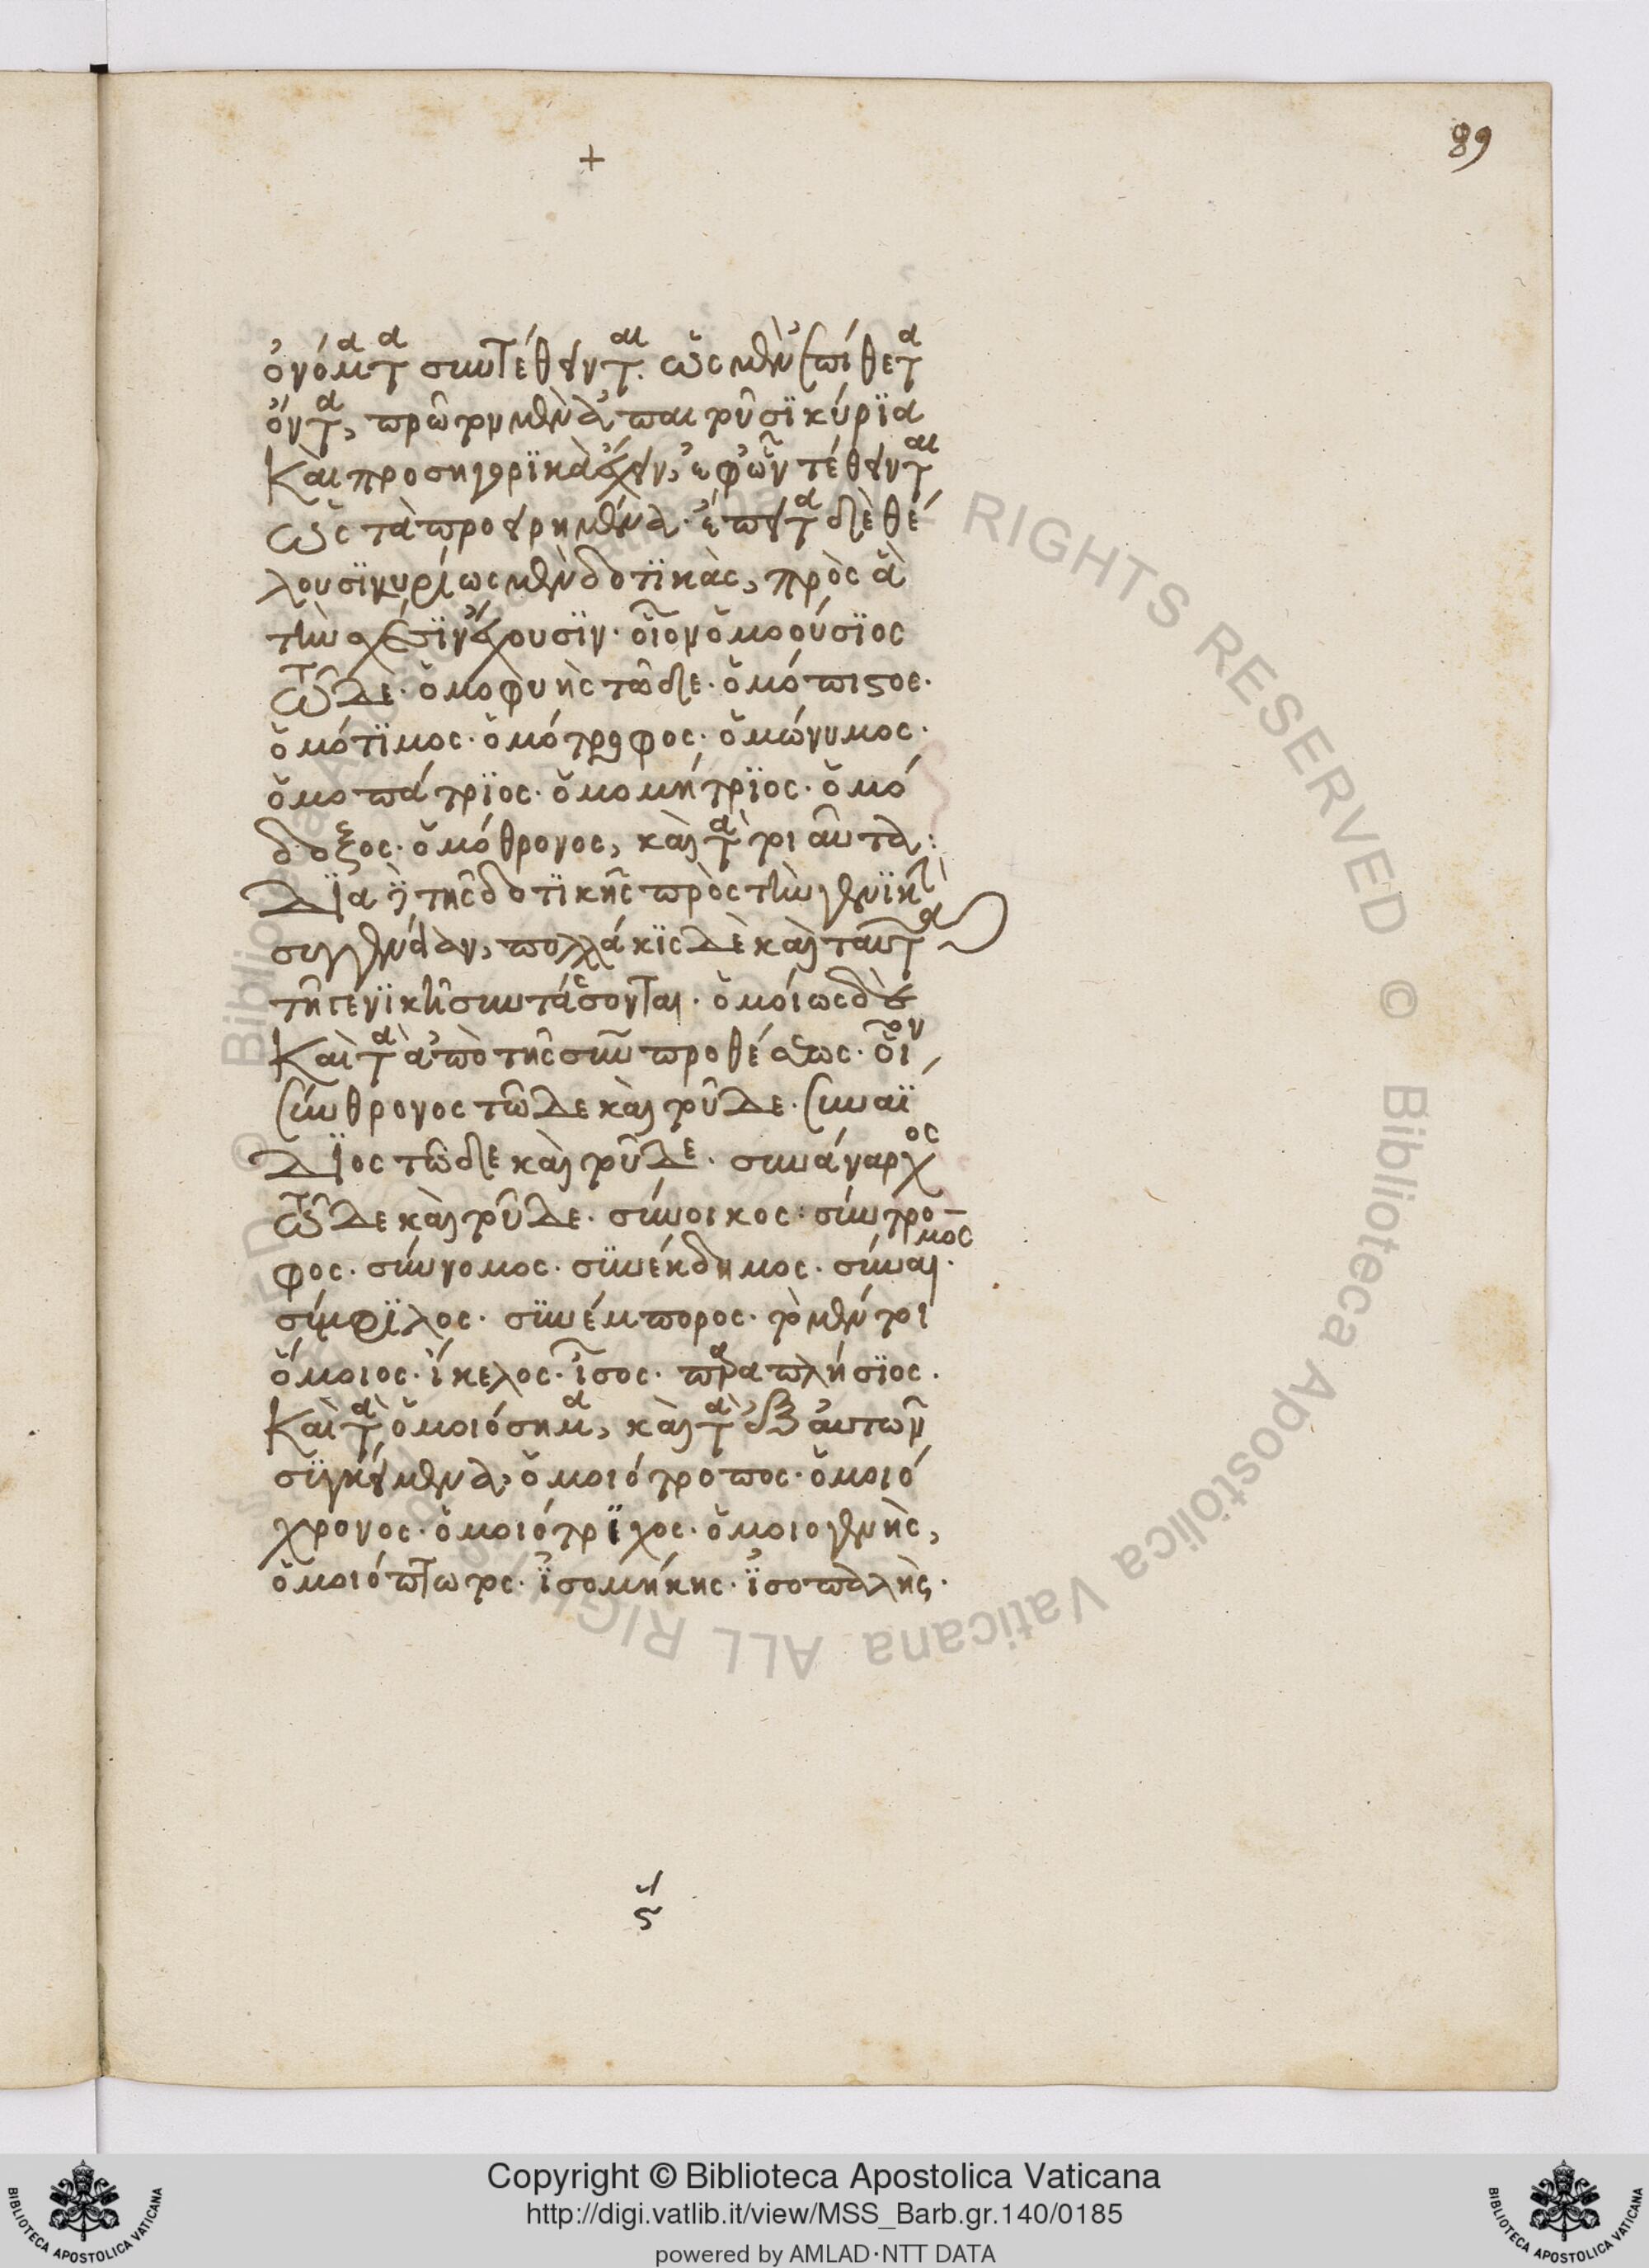 89
+
ὀνόματα συντέθεινται. ὡς μὲν ἐπίθετα
ὄντα, πρῶτον μὲν ἀπαιτοῦσϊ κύρϊα
Καὶ προσηγορϊκὰ ἔχειν, ἐφ' ὧν τέθεινται
ὡς τὰ προειρημένα. ἔπειτα δὲ θέ
λουσϊ κυρίως μὲν δοτϊκὰς, πρὸς ἃ
τὴν σχέσϊν ἔχουσϊν. οἷον ὁμοούσϊος
τῶδε. ὁμοφυὴς τῶδε. ὁμόπιστος.
ὁμότϊμος. ὁμότροφος. ὁμώνυμος.
ὁμοπάτρϊος. ὁμομήτρϊος. ὁμό
δοξος. ὁμόθρονος, καὶ τὰ τοιαῦτα:
Δϊὰ τῆς δοτϊκῆς πρὸς τὴν γενϊκὴν
συγγένειαν, πολλάκϊς δὲ καὶ ταῦτα
τῆ γενϊκῆ συντάσσονται. ὁμοίως δὲ
Καὶ τὰ ἀπὸ τῆς σὺν προθέσεως. οἷον
σύνθρονος τῶδε καὶ τοῦδε. συναΐ
Δϊος τῶδε καὶ τοῦδε. συνάναρχος
τῶδε καὶ τοῦδε. σύνοικος. σύντρο-
φος. σύννομος. συνέκδημος. σύναιμος.
σύμφϊλος. συνέμπορος. τὸ μέντοι
ὅμοιος. ἴκελος. ἶσος. παραπλήσϊος.
Καὶ τὰ ὁμοιόσημα, καὶ τὰ ἐξ αὐτῶν
συγκείμενα, ὁμοιότροπος. ὁμοιό
χρονος. ὁμοιότρϊχος. ὁμοιογενὴς,
ὁμοιόπτωτος. ἰσομήκης. ἰσοπαλής.
ϛ
Copyright © Biblioteca Apostolica Vaticana
http://digi.vatlib.it/view/MSS_Barb.gr.140/0185
powered by AMLAD·NTT DATA
BIBLIOTECA APOSTOLICA VATICANA
BIBLIOTECA APOSTOLICA VATICANA
© Biblioteca Apostolica Vaticana ALL RIGHTS RESERVED